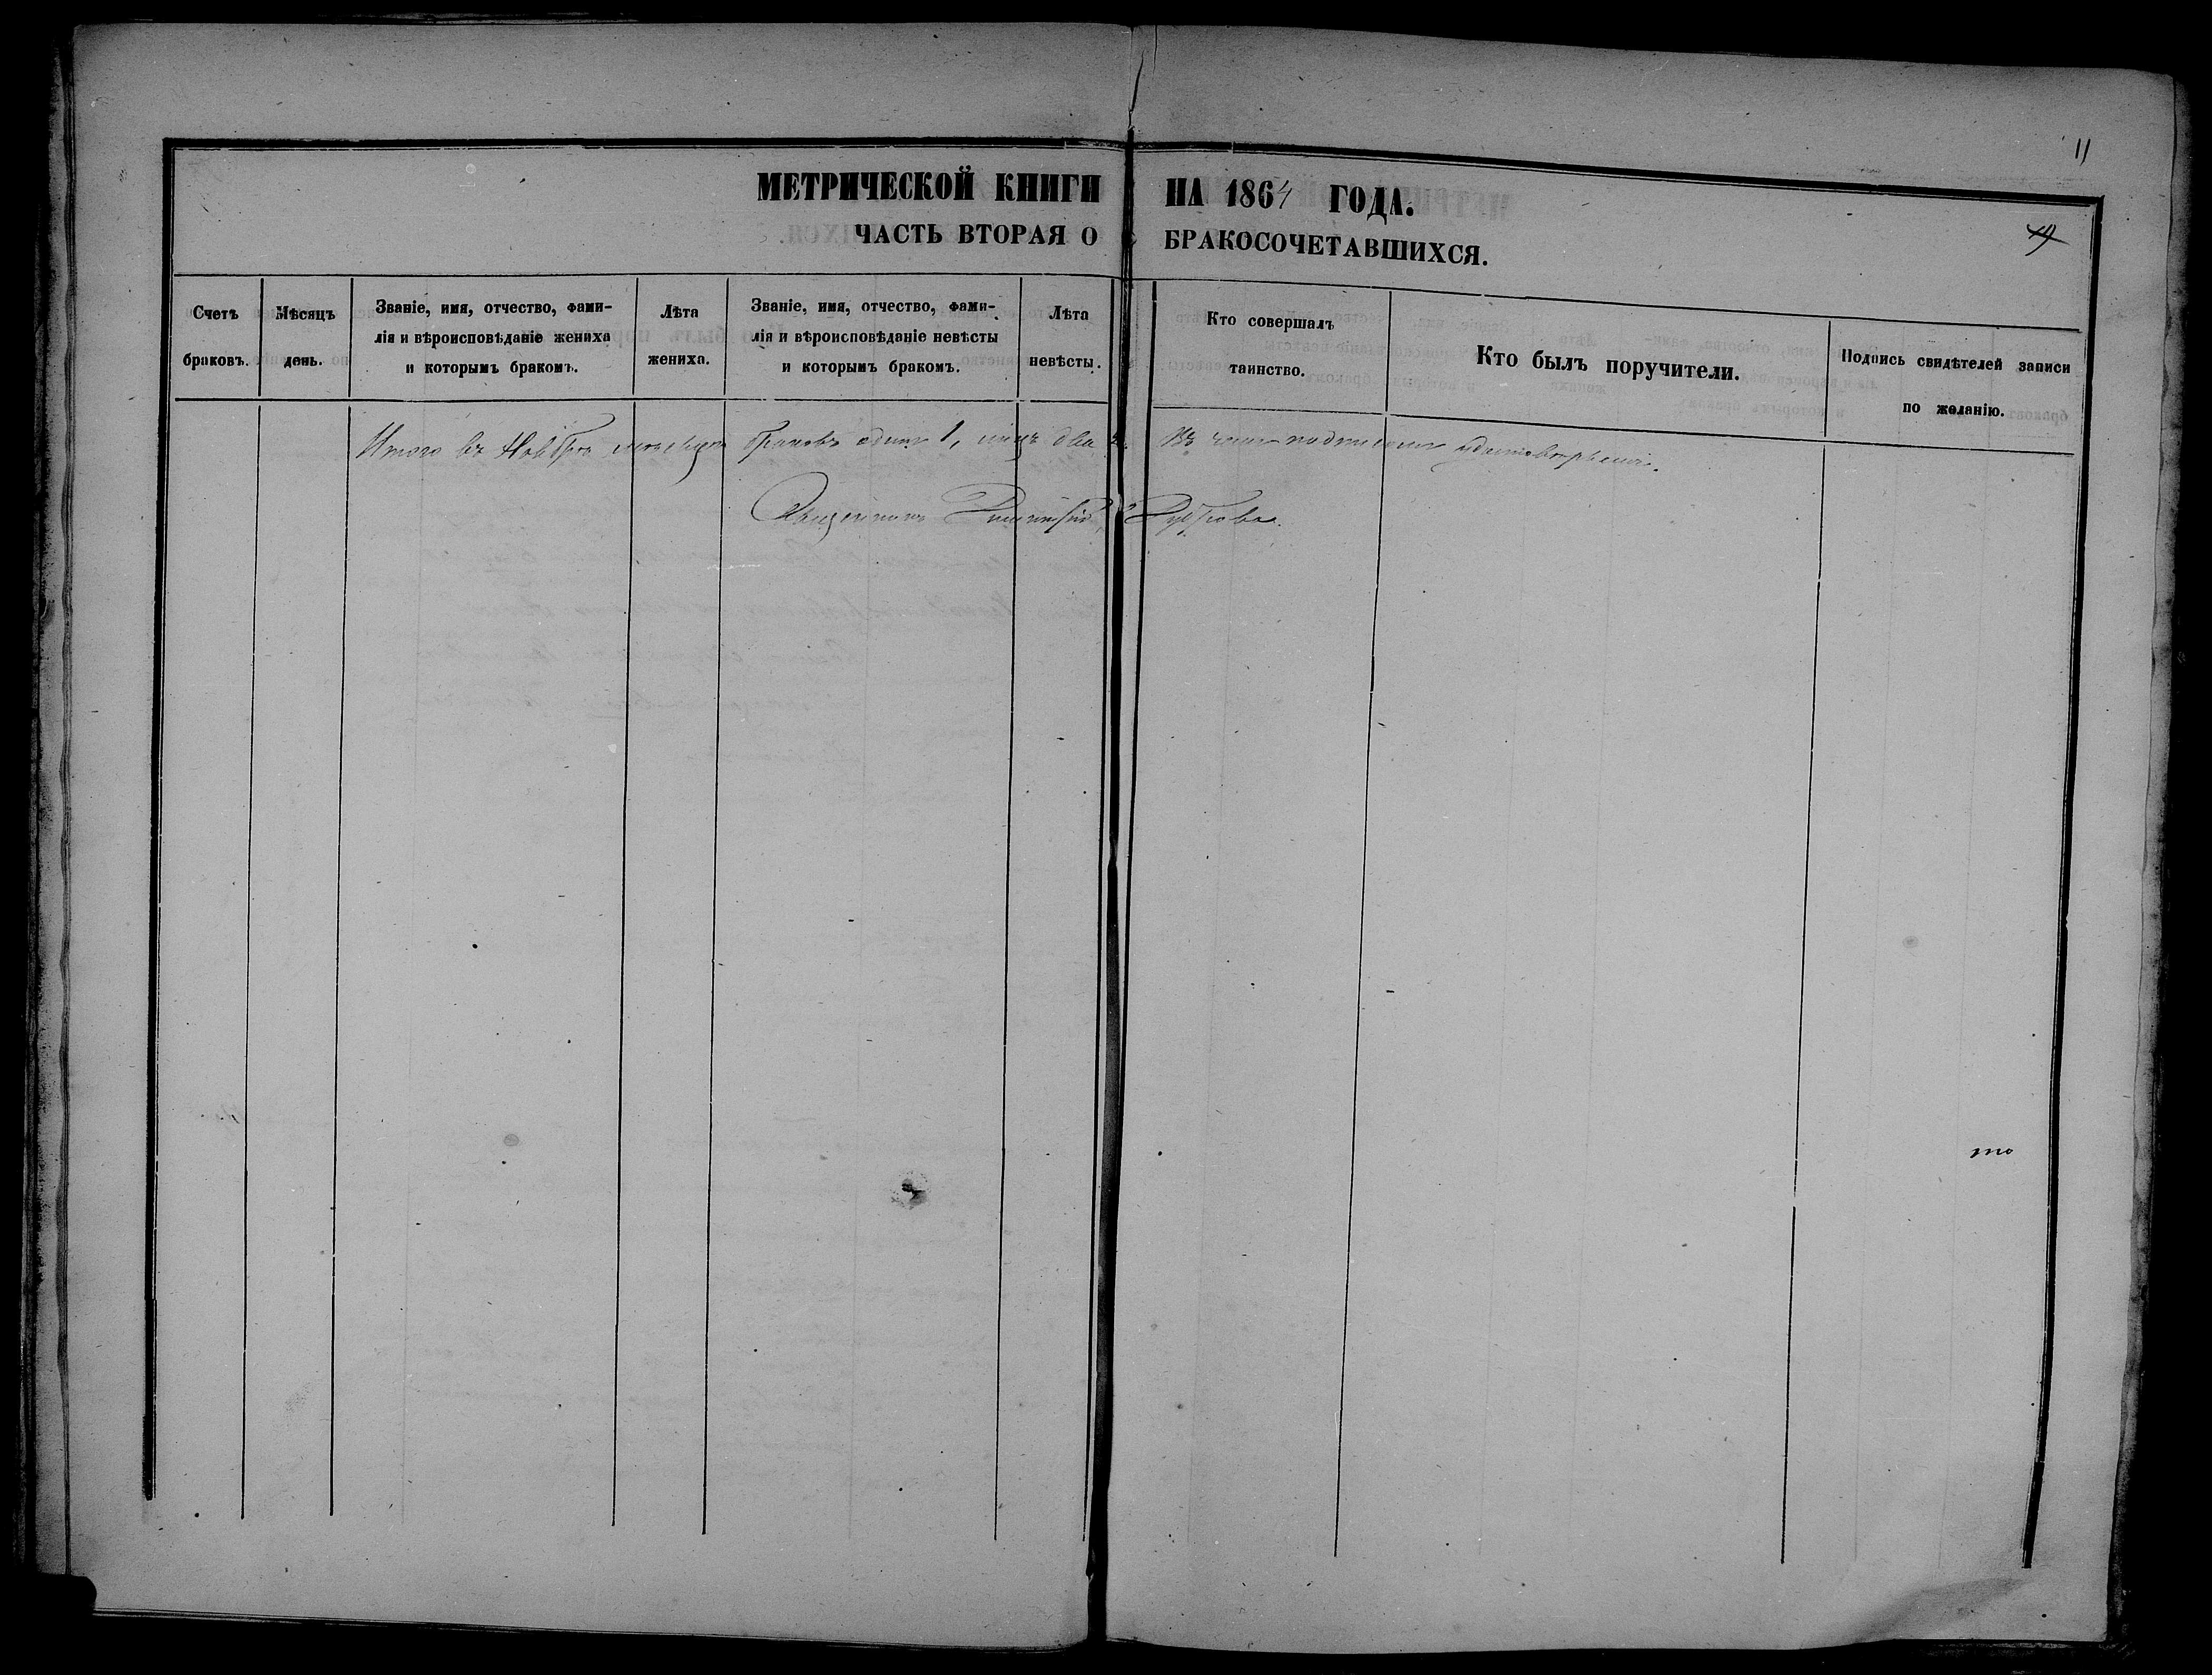 11
МЕТРИЧЕСКОЙ КНИГИ НА 1864 ГОДА.
ЧАСТЬ ВТОРАЯ О БРАКОСОЧЕТАВШИХСЯ.
Счетъ
браковъ.
Мѣсяцъ
день.
Званіе, имя, отчество, фами-
лія и вѣроисповѣданіе жениха
и которымъ бракомъ.
Лѣта
жениха.
Званіе, имя, отчество, фами-
лія и вѣроисповѣданіе невѣсты
и которымъ бракомъ.
Лѣта
невѣсты.
Кто совершалъ
таинство.
Кто былъ поручители.
Подпись свидѣтелей записи
по желанію.
Итого въ Ноябрѣ мѣсяцѣ браковъ одинъ 1, лицъ два 2. Въ чемъ подписомъ
Священникъ Димитрій
то